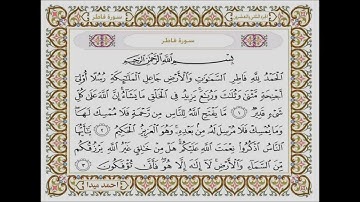 سورة فاطر
سورة فاطر
بِسْمِ ٱللَّهِ ٱلرَّحْمَٰنِ ٱلرَّحِيمِ
ٱلْحَمْدُ لِلَّهِ فَاطِرِ ٱلسَّمَٰوَٰتِ وَٱلْأَرْضِ جَاعِلِ ٱلْمَلَٰٓئِكَةِ رُسُلًا أُو۟لِىٓ
أَجْنِحَةٍ مَّثْنَىٰ وَثُلَٰثَ وَرُبَٰعَ يَزِيدُ فِى ٱلْخَلْقِ مَا يَشَآءُ إِنَّ ٱللَّهَ عَلَىٰ كُلِّ
شَىْءٍ قَدِيرٌ ١ مَّا يَفْتَحِ ٱللَّهُ لِلنَّاسِ مِن رَّحْمَةٍ فَلَا مُمْسِكَ لَهَا
وَمَا يُمْسِكْ فَلَا مُرْسِلَ لَهُۥ مِنۢ بَعْدِهِۦ وَهُوَ ٱلْعَزِيزُ ٱلْحَكِيمُ ٢ يَٰٓأَيُّهَا
ٱلنَّاسُ ٱذْكُرُوا۟ نِعْمَتَ ٱللَّهِ عَلَيْكُمْ هَلْ مِنْ خَٰلِقٍ غَيْرُ ٱللَّهِ يَرْزُقُكُم
مِّنَ ٱلسَّمَآءِ وَٱلْأَرْضِ لَآ إِلَٰهَ إِلَّا هُوَ فَأَنَّىٰ تُؤْفَكُونَ ٣